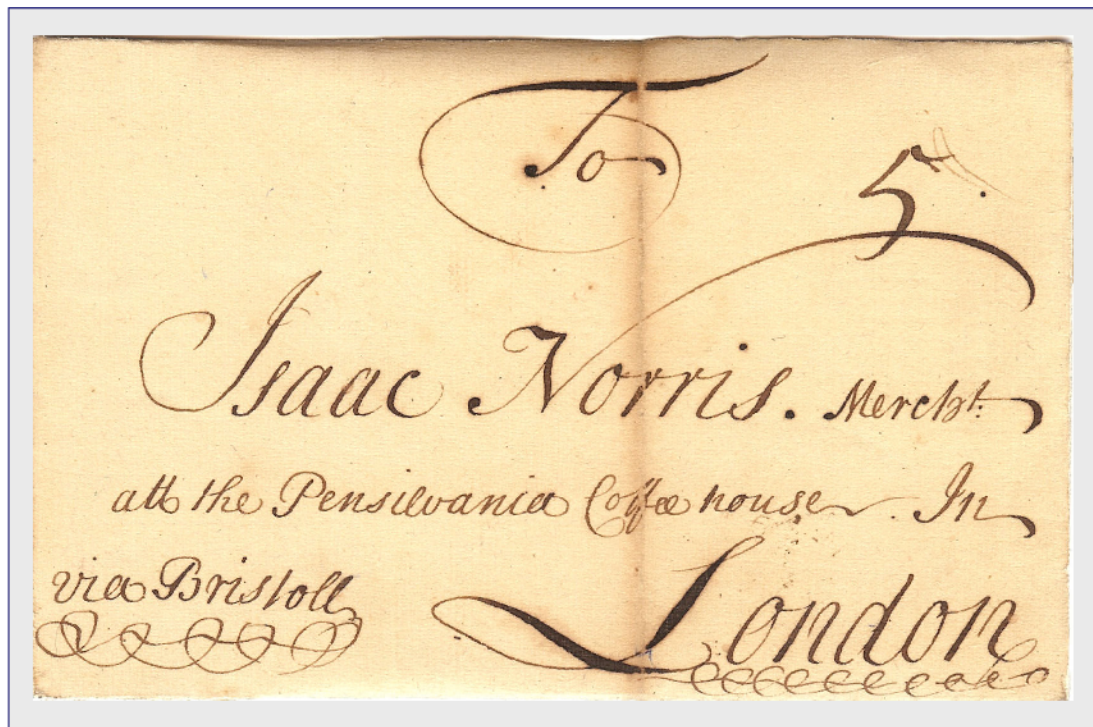 To
5
Isaac Norris. Mercht.
att the Pensilvania Coffee house. In
via Bristoll
London